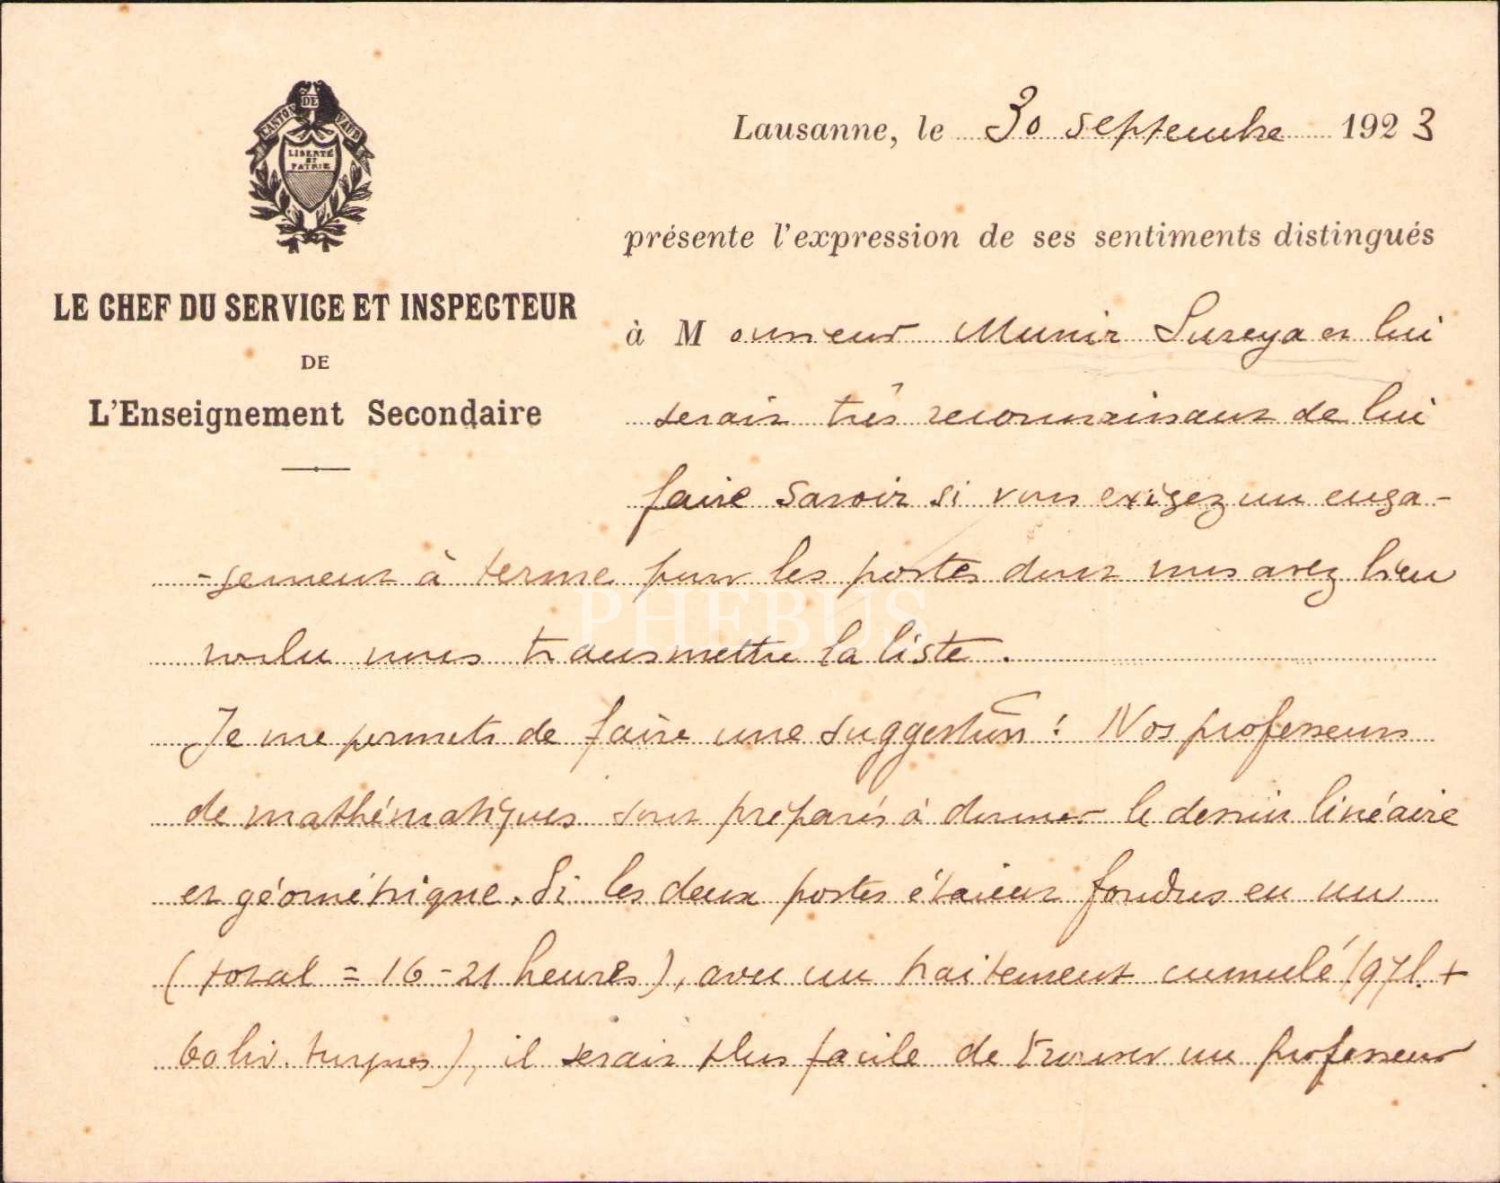 CANTON DE VAUD
LIBERTÉ
ET
PATRIE
LE CHEF DU SERVICE ET INSPECTEUR
DE
L'Enseignement Secondaire
Lausanne, le 30 septembre 1923
présente l'expression de ses sentiments distingués
à Monsieur Munir Sureya et lui
serait très reconnaissant de lui
faire savoir si vous exigez un enga-
-gement à terme pour les postes dont vous avez bien
voulu nous transmettre la liste.
PHEBUS
Je me permets de faire une suggestion : Nos professeurs
de mathématiques sont préparés à donner le dessin linéaire
et géométrique. Si les deux postes étaient fondus en un
(total = 16-21 heures), avec un traitement cumulé (97 l. +
60 liv. turques), il serait plus facile de trouver un professeur